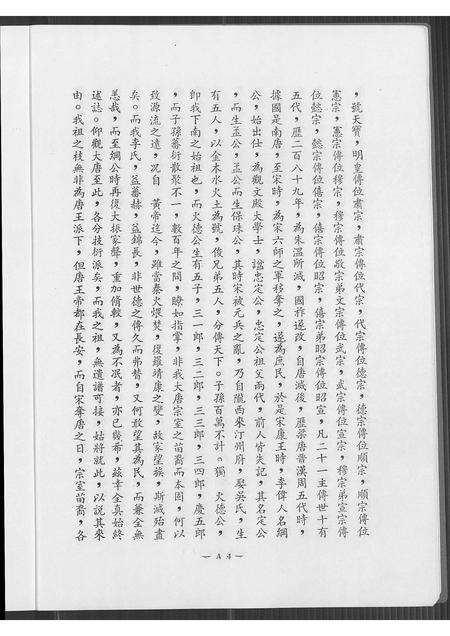 ，號天寶，明皇傳位肅宗，肅宗傳位代宗，代宗傳位德宗，德宗傳位順宗，順宗傳位
憲宗，憲宗傳位穆宗，穆宗傳位敬宗弟文宗傳位武宗，武宗傳位宣宗，穆宗弟宣宗傳
位懿宗，懿宗傳位僖宗，僖宗傳位昭宗，僖宗弟昭宗傳位昭宣，凡二十一主傳世十有
五代，歷二百八十九年，為朱溫所滅，國祚遂改，自唐滅後，歷梁唐晉漢周五代時，
據國是南唐，至宋時，為宋六師之軍移奪之，遂為庶民，於是宋康王時，李偉人名綱
公，始出仕，為觀文殿大學士，諡忠定公，忠定公祖父兩代，前人皆失記，其名定公
，而生孟公，孟公而生保珠公，其時宋被元兵之亂，乃自隴西來汀州府，娶吳氏，生
有五人，以金木水火土為號，俊兄弟五人，分傳天下。子孫百萬不計。獨　火德公，
即我下南之始祖也，而火德公生有五子，三一郎，三二郎，三三郎，三四郎，慶五郎
，而子孫蕃衍散聚不一，數百年之間，瞭如指掌，非我大唐宗室之苗裔而本固，何以
致源流之遠，况自　黃帝迄今，雖當秦火煨焚，復罹靖康之變，故家望族，斯滅殆盡
矣。而我李氏，益蕃赫，益錦長，非世德之傳久而弗替，又何敢望其為民，而兼金無
恙哉，而至綱公時再復大振家聲，重加脩輯，又為不泯者，亦已幾希，茲幸全真始終
述誌。仰觀大唐至此，各分技衍派矣，而我之祖，無遺譜可接，姑將就此，以說其來
由。我祖之枝無非為唐王派下，但唐王帝都在長安，而自宋奪唐之日，宗室苗裔，各
—A4—